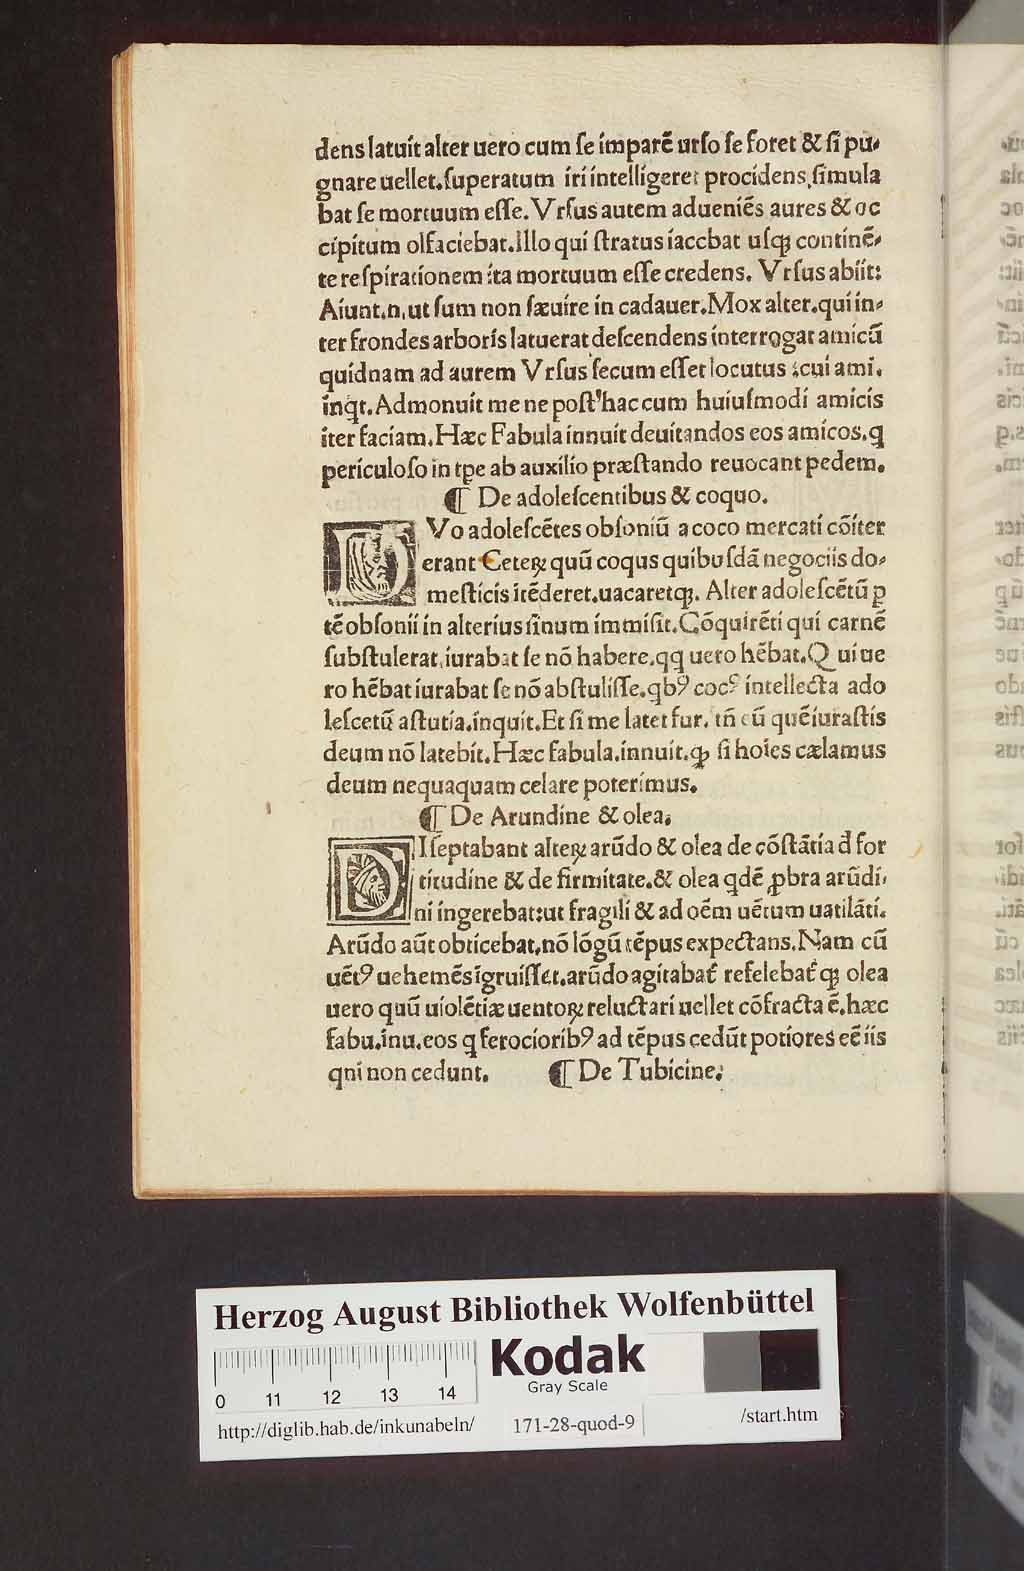 dens latuit alter uero cum ſe imparē urſo ſe foret & ſi pu⸗
gnare uellet.ſuperatum iri intelligeret procidens,ſimula
bat ſe mortuum eſſe. Vrſus autem adueniēs aures & oc
cipitum olfaciebat.Illo qui ſtratus iacebat uſqꝫ continē⸗
te reſpirationem ita mortuum eſſe credens. Vrſus abiit:
Aiunt.n.ut ſum non ſæuire in cadauer.Mox alter.qui in⸗
ter frondes arboris latuerat deſcendens interrogat amicū
quidnam ad aurem Vrſus ſecum eſſet locutus :cui ami.
inqt.Admonuit me ne poſt'hac cum huiuſmodi amicis
iter faciam.Hæc Fabula innuit deuitandos eos amicos.q
periculoſo in tpe ab auxilio præſtando reuocant pedem.
¶ De adoleſcentibus & coquo.
DVo adoleſcētes obſoniū a coco mercati cōiter
erant Ceteꝝ quū coqus quibuſdā negociis do⸗
meſticis itēderet.uacaretqꝫ. Alter adoleſcētū ꝑ
tē obſonii in alterius ſinum immiſit.Cōquirēti qui carnē
ſubſtulerat,iurabat ſe nō habere.qq uero hēbat.Qui ue
ro hēbat iurabat ſe nō abſtuliſſe.qbꝰ cocꝰ intellecta ado
leſcetū aſtutia.inquit.Et ſi me latet fur. tñ eū quē iuraſtis
deum nō latebit.Hæc fabula.innuit.ꝙ ſi hoies cælamus
deum nequaquam celare poterimus.
¶ De Arundine & olea.
DIſeptabant alteꝝ arūdo & olea de cōſtātia đ for
titudine & de firmitate.& olea qdē ꝓbra arūdi⸗
ni ingerebat:ut fragili & ad oēm uētum uatilāti.
Arūdo aūt obticebat.nō lōgū tēpus expectans.Nam cū
uētꝰ uehemēs īgruiſſet.arūdo agitabat̄ refelebat̄ qꝫ olea
uero quū uiolētiæ uentoꝝ reluctari uellet cōfracta ē.hæc
fabu.inu.eos q ferocioribꝰ ad tēpus cedūt potiores eē iis
qni non cedunt. ¶ De Tubicine.
Herzog August Bibliothek Wolfenbüttel
Kodak
Gray Scale
0 11 12 13 14
http://diglib.hab.de/inkunabeln/ 171-28-quod-9 /start.htm